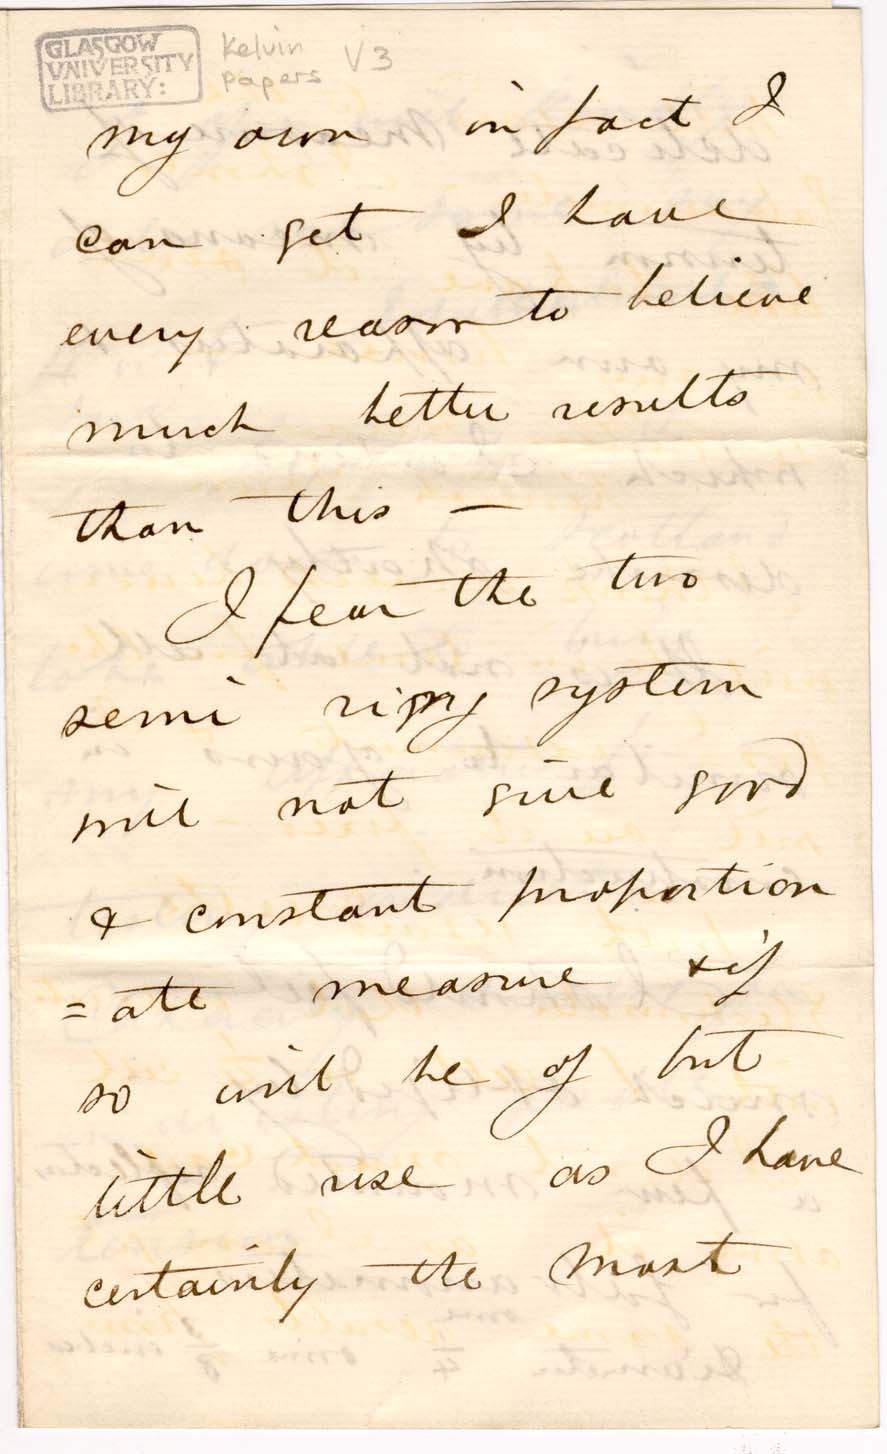 GLASGOW
UNIVERSITY
LIBRARY:
Kelvin
papers V3
my own in fact I
can get I have
every reason to believe
much better results
than this —
I fear the two
semi ring system
will not give good
& constant proportion
= ate measure & if
so will be of but
little use as I have
certainly the most